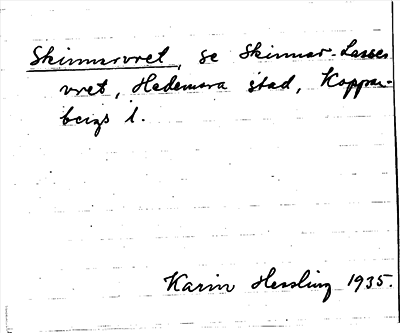 Skinnarvret, se Skinnar-Lasses
vret, Hedemora stad, Koppar-
bergs l.
Karin Hessling 1935.